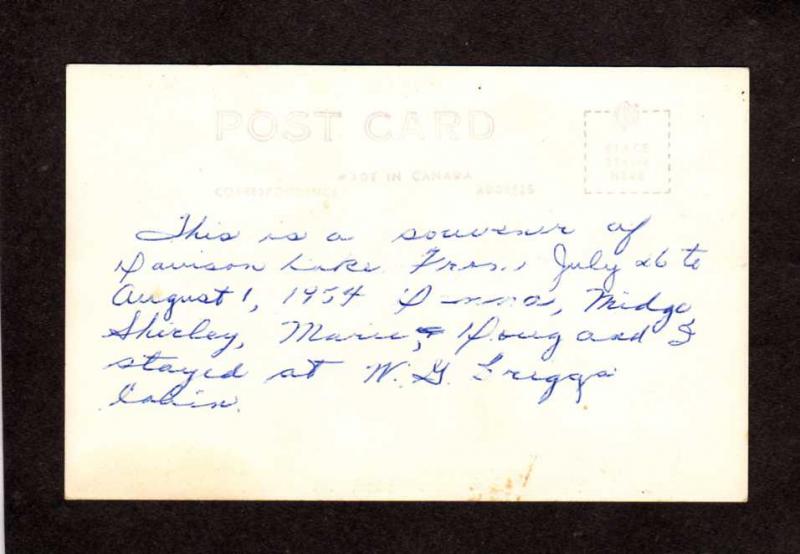 POST CARD
PLACE
STAMP
HERE
MADE IN CANADA
CORRESPONDENCE ADDRESS
This is a souvenir of
Davison Lake From July 26 to
August 1, 1954 Donna, Midge,
Shirley, Marie, Doug and I
stayed at W. G. Griggs
Cabin.